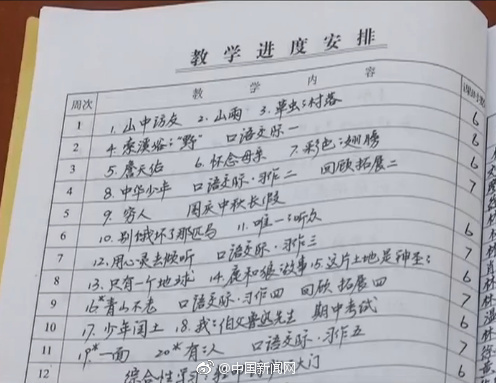 教学进度安排
周次 教学内容 课时
1 1.山中访友 2.山雨 3.草虫的村落 6
2 4.索溪峪的“野” 口语交际一 8
3 5.詹天佑 6.怀念母亲 7.彩色的翅膀 6
4 8.中华少年 口语交际·习作二 回顾拓展二 7
5 9.穷人 国庆中秋长假
6 10.别饿坏了那匹马 11.唯一的听众 6
7 12.用心灵去倾听 口语交际·习作三 7
8 13.只有一个地球 14.鹿和狼的故事 15.这片土地是神圣的
9 16*青山不老 口语交际·习作四 回顾拓展四 7
10 17.少年闰土 18.我的伯父鲁迅先生 期中考试
11 19*一面 20*有的人 口语交际·习作五
12 综合性学习 大门
@中国新闻网